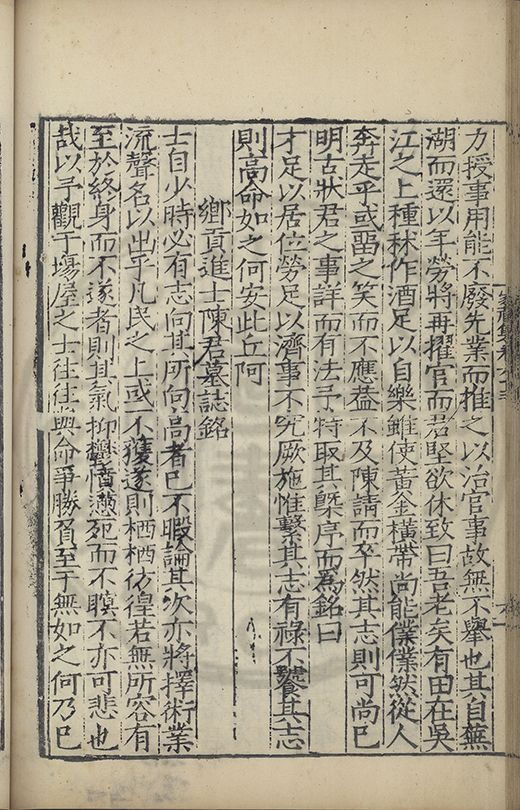 力授事用能不廢先業而推之以治官事故無不舉也其自蕪
湖而還以年勞將再擢官而君堅欲休致曰吾老矣有田在吳
江之上種秫作酒足以自樂雖使黃金橫帶尚能僕僕然從人
奔走乎或畱之笑而不應葢不及陳請而卒然其志則可尚巳
明古狀君之事詳而有法予特取其槩序而為銘曰
才足以居位勞足以濟事不究厥施惟繫其志有祿不饗其志
則高命如之何安此丘阿
鄉貢進士陳君墓誌銘
士自少時必有志向其所向高者巳不暇論其次亦將擇術業
流聲名以出乎凡民之上或一不獲遂則栖栖彷徨若無所容有
至於終身而不遂者則其氣抑鬱憤懣死而不瞑不亦可悲也
哉以予觀于塲屋之士往往與命爭勝負至于無如之何乃巳